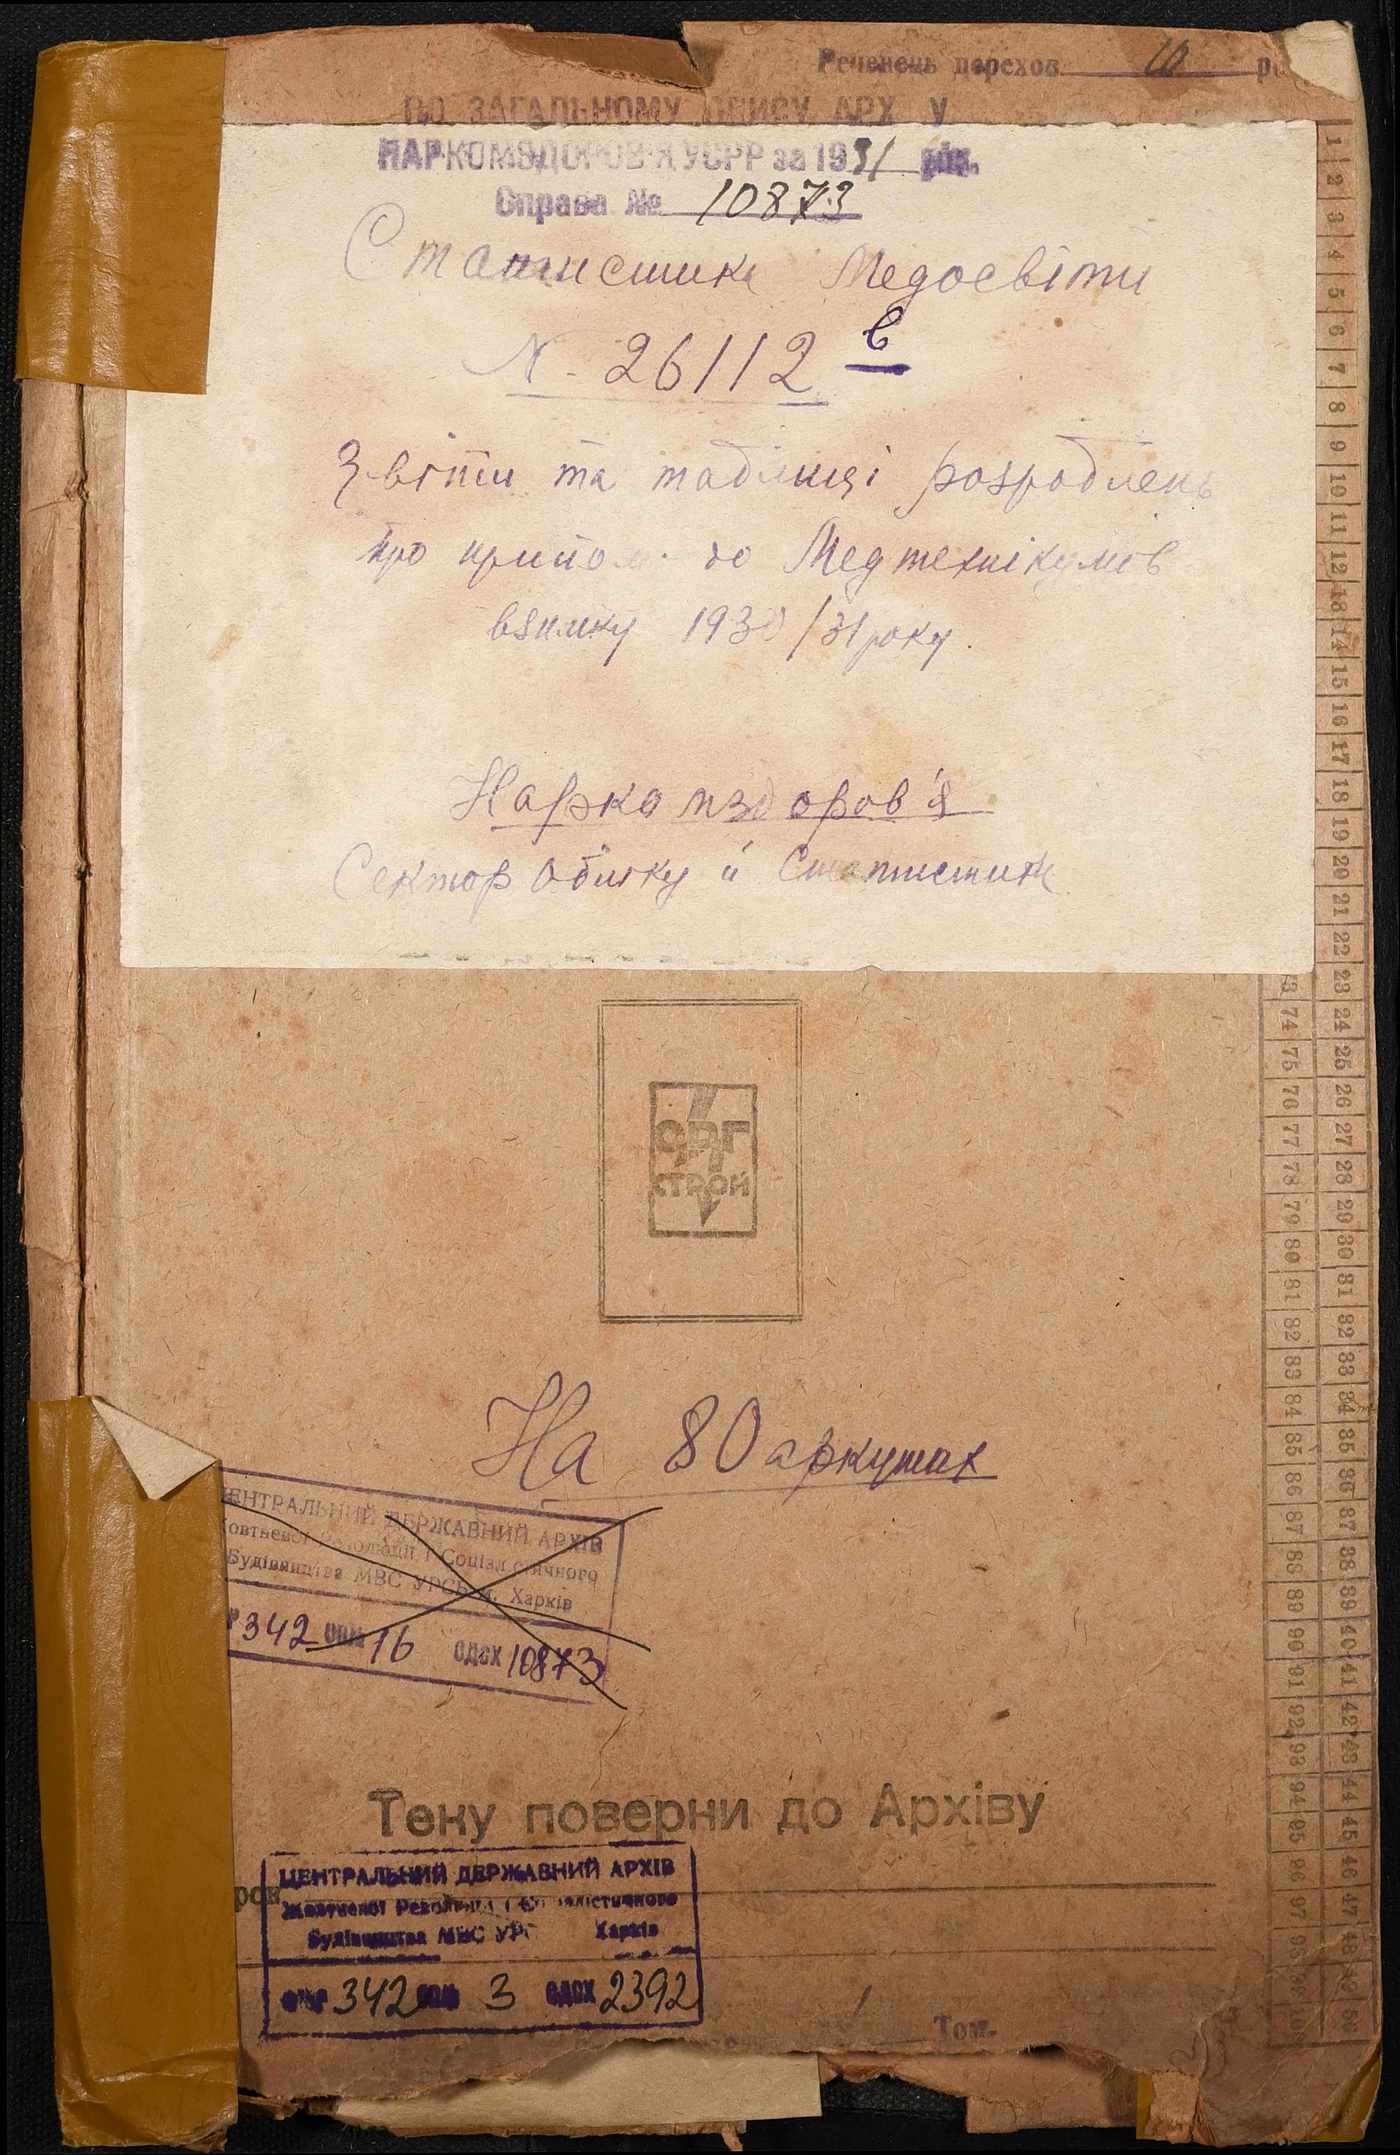 Реченець перехов. 10
ПО ЗАГАЛЬНОМУ ОПИСУ АРХ У
НАРКОМЗДОРОВ'Я УСРР за 1931 рік.
Справа № 10873
Статистика Медосвіти
N - 26112 в
Звіти та таблиці розроблень
про прийом до Медтехнікумів
взимку 1930/31 року.
Наркомздоров'я
Сектор Обліку й Статистики
ОРГ
СТРОЙ
На 80 аркушах
ЦЕНТРАЛЬНИЙ ДЕРЖАВНИЙ АРХІВ
Жовтневої Революції і Соціалістичного
Будівництва МВС УРСР м. Харків
342 ОПИ 16 ОДСХ 10873
Теку поверни до Архіву
ЦЕНТРАЛЬНИЙ ДЕРЖАВНИЙ АРХІВ
Жовтневої Революції і Соціалістичного
Будівництва МВС УРСР Харків
ФОНД 342 ОПИ 3 ОДСХ 2392
Том.
1 2 3 4 5 6 7 8 9 10 11 12 13 14 15 16 17 18 19 20 21 22 23 24 25 26 27 28 29 30 31 32 33 34 35 36 37 38 39 40 41 42 43 44 45 46 47 48 49 50
73 74 75 76 77 78 79 80 81 82 83 84 85 86 87 88 89 90 91 92 93 94 95 96 97 98 99 100